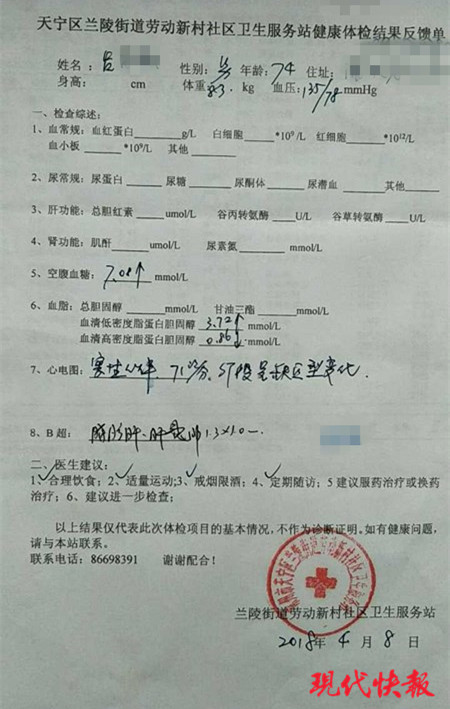 天宁区兰陵街道劳动新村社区卫生服务站健康体检结果反馈单
姓名: 吕 性别: 男 年龄: 74 住址:
身高: cm 体重: 83 kg 血压: 135/78 mmHg
一、检查综述:
1、血常规: 血红蛋白 g/L 白细胞 *10⁹/L 红细胞 *10¹²/L
血小板 *10⁹/L 其他
2、尿常规: 尿蛋白 尿糖 尿酮体 尿潜血 其他
3、肝功能: 总胆红素 umol/L 谷丙转氨酶 U/L 谷草转氨酶 U/L
4、肾功能: 肌酐 umol/L 尿素氮 mmol/L
5、空腹血糖: 7.08↑ mmol/L
6、血脂: 总胆固醇 mmol/L 甘油三酯 mmol/L
血清低密度脂蛋白胆固醇 3.72↑ mmol/L
血清高密度脂蛋白胆固醇 0.86↓ mmol/L
7、心电图: 窦性心律, 71次/分, ST段呈缺区型变化.
8、B超: 脂肪肝、肝 1.3×1.0
二、医生建议:
1、合理饮食; 2、适量运动; 3、戒烟限酒; 4、定期随访; 5 建议服药治疗或换药
治疗; 6、建议进一步检查;
以上结果仅代表此次体检项目的基本情况, 不作为诊断证明, 如有健康问题,
请与本站联系。
联系电话: 86698391 谢谢配合!
兰陵街道劳动新村社区卫生服务站
2018年 4 月 8 日
现代快报